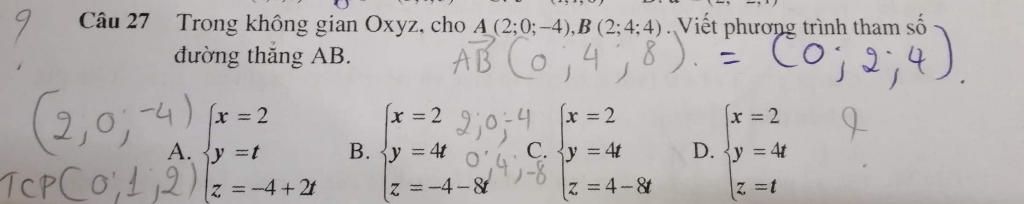 9 Câu 27 Trong không gian Oxyz, cho A (2;0;−4), B (2;4;4). Viết phương trình tham số
đường thẳng AB.
AB (0 ; 4 ; 8). = (0 ; 2 ; 4).
(2;0;-4)
TCP(0;1;2)
A. { x = 2
y = t
z = −4 + 2t
B. { x = 2
y = 4t
z = −4 − 8t
2;0;-4
0;4;-8
C. { x = 2
y = 4t
z = 4 − 8t
D. { x = 2
y = 4t
z = t